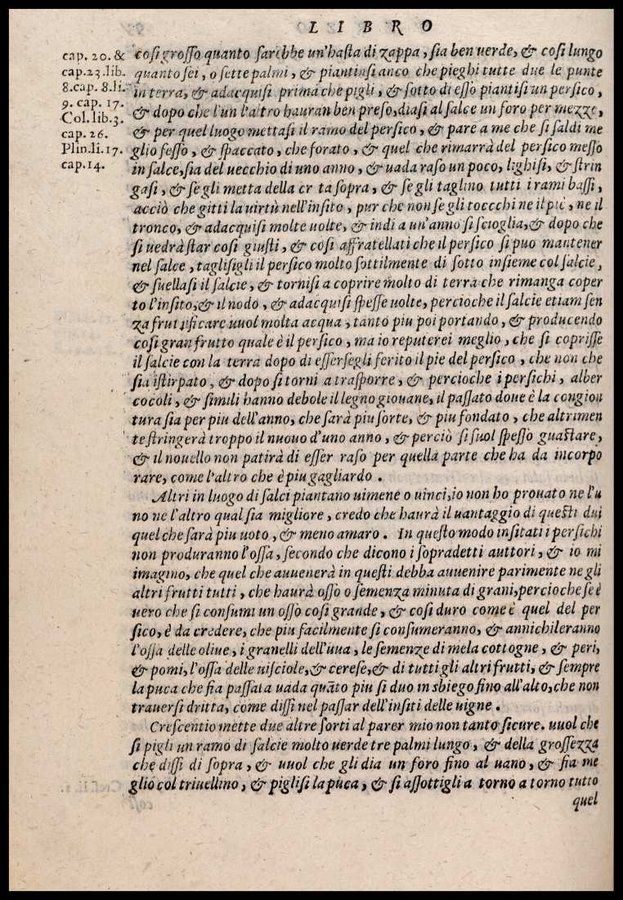 LIBRO
cap. 20. &
cap. 23. lib.
8. cap. 8. li.
9. cap. 17.
Col. lib. 3.
cap. 26.
Plin. li. 17.
cap. 14.
cosi grosso quanto sarebbe un'hasta di zappa, sia ben uerde, & cosi lungo
quanto sei, o sette palmi, & piantinsi anco che pieghi tutte due le punte
in terra, & adacquisi prima che pigli, & sotto di esso piantisi un persico,
& dopo che l'un l'altro hauran ben preso, diasi al salce un foro per mezzo,
& per quel luogo mettasi il ramo del persico, & pare a me che si saldi me
glio fesso, & spaccato, che forato, & quel che rimarrà del persico messo
in salce, sia del uecchio di uno anno, & uada raso un poco, lighisi, & strin
gasi, & se gli metta della cr ta sopra, & se gli taglino tutti i rami bassi,
acciò che gitti la uirtù nell'insito, pur che non se gli toccchi ne il piè, ne il
tronco, & adacquisi molte uolte, & indi a un'anno si scioglia, & dopo che
si uedrà star cosi giusti, & cosi affratellati che il persico si puo mantener
nel salce, taglisigli il persico molto sottilmente di sotto insieme col salcie,
& suellasi il salcie, & tornisi a coprire molto di terra che rimanga coper
to l'insito, & il nodo, & adacquisi spesse uolte, percioche il salcie etiam sen
za fruttificare uuol molta acqua, tanto piu poi portando, & producendo
cosi gran frutto quale è il persico, ma io reputerei meglio, che si coprisse
il salcie con la terra dopo di essersegli ferito il pie del persico, che non che
sia istirpato, & dopo si torni a trasporre, & percioche i persichi, alber
cocoli, & simili hanno debole il legno giouane, il passato doue è la congion
tura sia per piu dell'anno, che sarà piu forte, & piu fondato, che altrimen
te stringerà troppo il nuouo d'uno anno, & perciò si suol spesso guastare,
& il nouello non patirà di esser raso per quella parte che ha da incorpo
rare, come l'altro che è piu gagliardo.
Altri in luogo di salci piantano uimene o uinci, io non ho prouato ne l'u
no ne l'altro qual sia migliore, credo che haurà il uantaggio di questi dui
quel che sarà piu uoto, & meno amaro. In questo modo insitati i persichi
non produranno l'ossa, secondo che dicono i sopradetti auttori, & io mi
imagino, che quel che auuenerà in questi debba auuenire parimente ne gli
altri frutti tutti, che haurà osso o semenza minuta di grani, percioche se è
uero che si consumi un osso cosi grande, & cosi duro come è quel del per
sico, è da credere, che piu facilmente si consumeranno, & annichileranno
l'ossa delle oliue, i granelli dell'uua, le semenze di mela cottogne, & peri,
& pomi, l'ossa delle uisciole, & cerese, & di tutti gli altri frutti, & sempre
la puca che sia passata uada quãto piu si può in sbiego fino all'alto, che non
trauersi dritta, come dissi nel passar dell'insiti delle uigne.
Crescentio mette due altre sorti al parer mio non tanto sicure. uuol che
si pigli un ramo di salcie molto uerde tre palmi lungo, & della grossezza
che dissi di sopra, & uuol che gli dia un foro fino al uano, & sia me
glio col triuellino, & piglisi la puca, & si assottigli a torno a torno tutto
quel